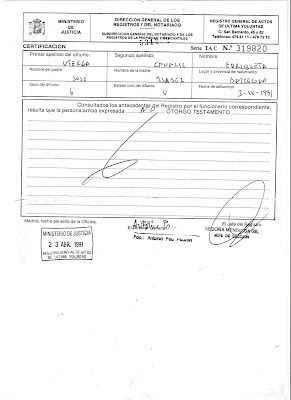 MINISTERIO
DE
JUSTICIA
DIRECCION GENERAL DE LOS REGISTROS
Y DEL NOTARIADO
SUBDIRECCION GENERAL DEL NOTARIADO Y DE LOS
REGISTROS DE LA PROPIEDAD Y MERCANTILES
REGISTRO GENERAL DE ACTOS
DE ULTIMA VOLUNTAD
C/ San Bernardo, 45 y 62
CERTIFICACION
Serie TA C N.º 319820
Primer apellido del difunto:
Segundo apellido:
Nombre:
ENRIQUETA
Nombre del padre:
Nombre de la madre:
Lugar y provincia de nacimiento:
JOSÉ
ISABEL
Sexo del difunto:
Estado civil del difunto:
Fecha de defunción:
V
Consultados los antecedentes del Registro por el funcionario correspondiente,
resulta que la persona arriba expresada NO OTORGO TESTAMENTO
Madrid, fecha del sello de la Oficina.
MINISTERIO DE JUSTICIA
23 ABR. 1991
REGISTRO GENERAL DE ACTOS
DE ULTIMA VOLUNTAD
Fdo.: Antonio Pau
El Jefe del Registro
BEGOÑA
JEFE DE SECCION